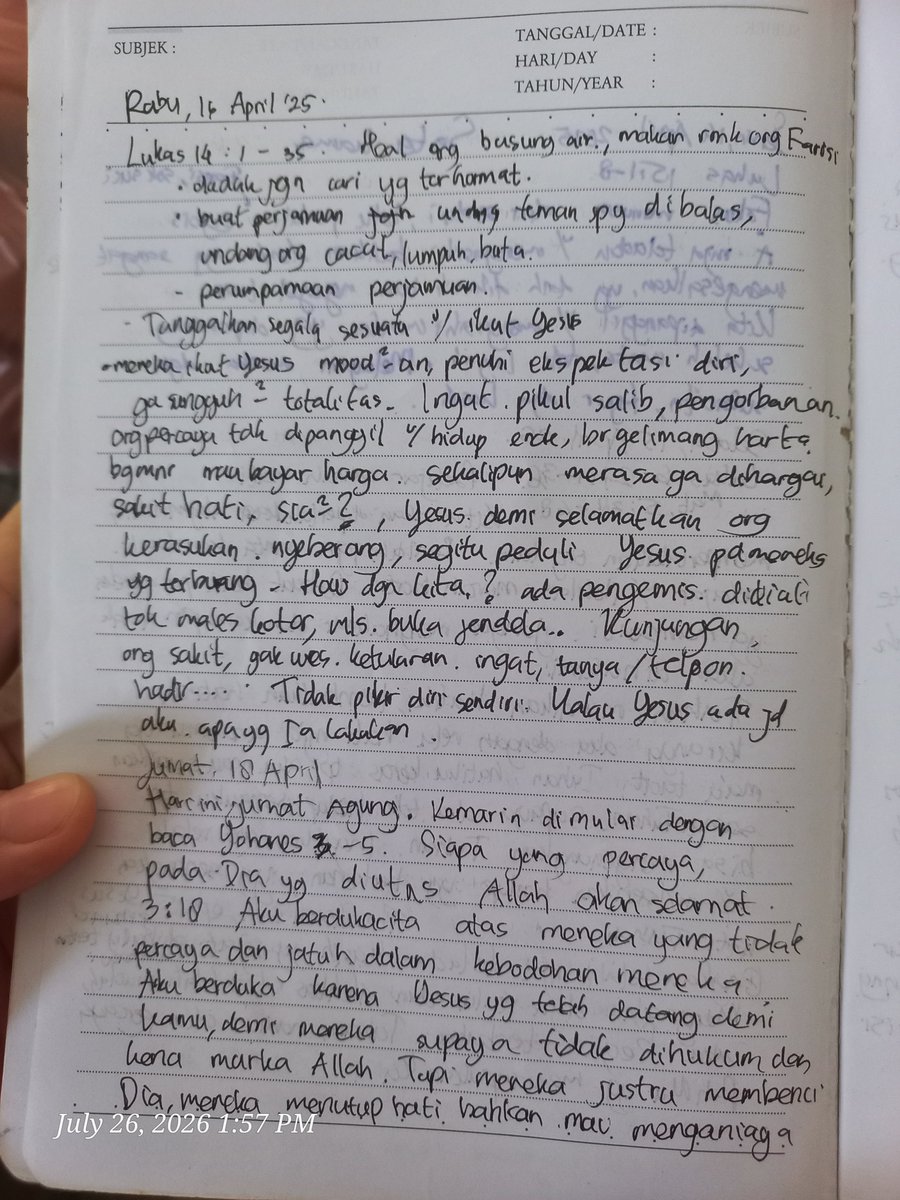 SUBJEK :
TANGGAL/DATE :
HARI/DAY :
TAHUN/YEAR :
Rabu, 16 April '25.
Lukas 14 : 1 - 35. Hal org busung air, makan rmh org Farisi
• duduk jgn cari yg terhormat.
• buat perjamuan jgn undng teman spy dibalas,
undang org cacat, lumpuh, buta.
- perumpamaan perjamuan.
- Tanggalkan segala sesuatu u/ ikut Yesus
- mereka ikut Yesus mood²-an, penuhi ekspektasi diri,
ga sungguh² - totalitas. Ingat pikul salib, pengorbanan.
org percaya tdk dipanggil u/ hidup enak, brgelimang harta
bgmnr mau bayar harga. sekalipun merasa ga dihargai,
sakit hati, sia²?, Yesus demi selamatkan org
kerasukan. nyeberang, segitu peduli Yesus pd mereka
yg terbuang - How dgn kita,? ada pengemis.
tdk males kotor, mls. buka jendela.. Kunjungan,
org sakit, gak wes. ketularan. ingat, tanya/telpon.
hadir.... Tidak pikir diri sendiri. Kalau Yesus ada jd
aku. apa yg Ia lakukan.
Jumat, 18 April
Hari ini jumat Agung. Kemarin dimulai dengan
baca Yohanes 3-5. Siapa yang percaya,
pada Dia yg diutus Allah akan selamat.
3:18 Aku berdukacita atas mereka yang tidak
percaya dan jatuh dalam kebodohan mereka
Aku berduka karena Yesus yg telah datang demi
kamu, demi mereka supaya tidak dihukum dan
kena murka Allah. Tapi mereka justru membenci
Dia, mereka menutup hati bahkan mau menganiaya
July 26, 2026 1:57 PM